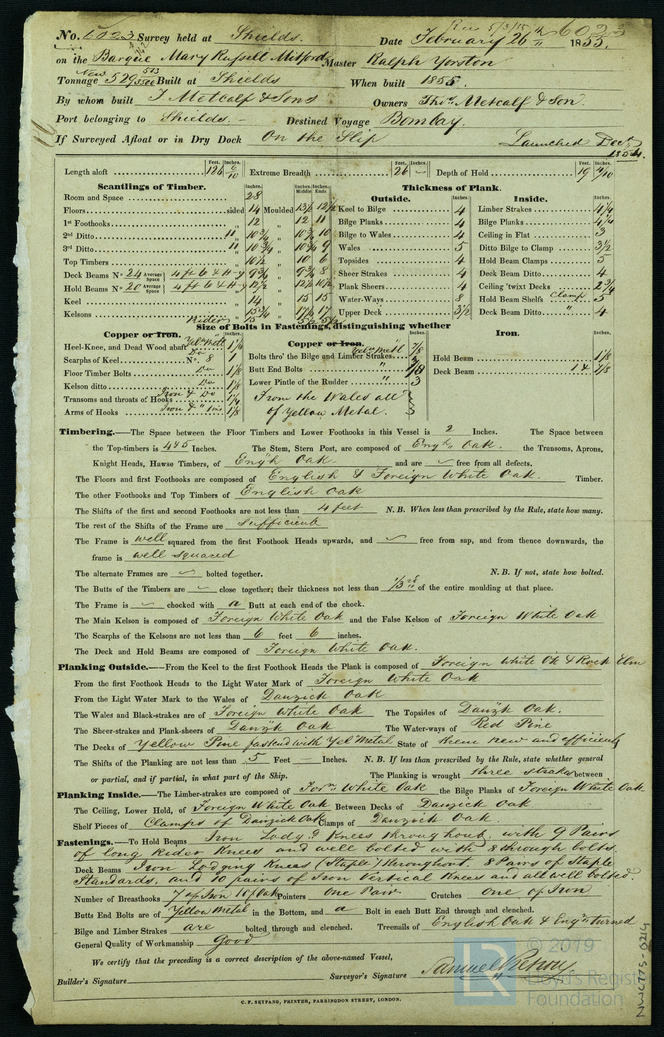 Rec 5/3/55 6023
No. 6023 Survey held at Shields. Date February 26th 1855.
on the Barque Mary Russell Mitford Master Ralph Yorston
Tonnage New 529 Built at Shields When built 1855.
By whom built J Metcalf & Sons Owners Thos. Metcalf & Son.
Port belonging to Shields.- Destined Voyage Bombay.
If Surveyed Afloat or in Dry Dock On the Slip Launched Decr 1854.
Length aloft 126 6/10 Extreme Breadth 26 Depth of Hold 19
Feet. Inches. Feet. Inches. Feet. Inches.
Scantlings of Timber.
Room and Space 28
Floors sided 14 Moulded 13½ 12½
1st Foothooks 12 " 12 11
2nd Ditto " 10¾ " 10¾ 10
3rd Ditto " 10¾ " 10¾ 9
Top Timbers 10½ " 10 6
Deck Beams No. 24 Average Space 4 ft 6 & H-y 9¾ " 9¾ 8
Hold Beams No. 20 Average Space 4 ft 6 & H-y 12½ " 12½ 10½
Keel 14 " 15 15
Kelsons 15¾ " 17½ 17
Rider 15
Thickness of Plank.
Outside.
Keel to Bilge 4
Bilge Planks 4
Bilge to Wales 4
Wales 5
Topsides 4
Sheer Strakes 4
Plank Sheers 4
Water-Ways 8
Upper Deck 3½
Inside.
Limber Strakes 4¼
Bilge Planks 4¼
Ceiling in Flat 3
Ditto Bilge to Clamp 3½
Hold Beam Clamps 5
Deck Beam Ditto 4
Ceiling 'twixt Decks 2¾
Hold Beam Shelfs Clamp 5
Deck Beam Ditto " 4
Size of Bolts in Fastenings, distinguishing whether
Copper or Iron.
Heel-Knee, and Dead Wood abaft Yel Metl 1⅛
Scarphs of Keel No. 8 Do 1
Floor Timber Bolts Do 1⅛
Kelson ditto Do 1⅛
Transoms and throats of Hooks Iron & Do
Arms of Hooks Iron & "
Copper or Iron.
Bolts thro' the Bilge and Limber Strakes Yel Metl 7/8
Butt End Bolts " 7/8
Lower Pintle of the Rudder " 3
From the Wales all
of Yellow Metal.
Iron.
Hold Beam 1⅛
Deck Beam 1 & 7/8
Timbering.—The Space between the Floor Timbers and Lower Foothooks in this Vessel is 2 Inches. The Space between
the Top-timbers is 4 & 5 Inches. The Stem, Stern Post, are composed of Engh. Oak. the Transoms, Aprons,
Knight Heads, Hawse Timbers, of Engh Oak and are free from all defects.
The Floors and first Foothooks are composed of English & Foreign White Oak. Timber.
The other Foothooks and Top Timbers of English Oak
The Shifts of the first and second Foothooks are not less than 4 feet N.B. When less than prescribed by the Rule, state how many.
The rest of the Shifts of the Frame are sufficient
The Frame is well squared from the first Foothook Heads upwards, and free from sap, and from thence downwards, the
frame is well squared
The alternate Frames are bolted together. N.B. If not, state how bolted.
The Butts of the Timbers are close together; their thickness not less than 1/3rd of the entire moulding at that place.
The Frame is chocked with a Butt at each end of the chock.
The Main Kelson is composed of Foreign White Oak and the False Kelson of Foreign White Oak
The Scarphs of the Kelsons are not less than 6 feet 6 inches.
The Deck and Hold Beams are composed of Foreign White Oak.
Planking Outside.—From the Keel to the first Foothook Heads the Plank is composed of Foreign White Ok & Rock Elm
From the first Foothook Heads to the Light Water Mark of Foreign White Oak
From the Light Water Mark to the Wales of Danzick Oak
The Wales and Black-strakes are of Foreign White Oak The Topsides of Danzk Oak.
The Sheer-strakes and Plank-sheers of Danzk Oak The Water-ways of Red Pine
The Decks of Yellow Pine fastend with Yel Metal State of Keem new and efficient
The Shifts of the Planking are not less than 5 Feet — Inches. N.B. If less than prescribed by the Rule, state whether general
or partial, and if partial, in what part of the Ship. The Planking is wrought three strakes between
Planking Inside.—The Limber-strakes are composed of Forn White Oak the Bilge Planks of Foreign White Oak
The Ceiling, Lower Hold, of Foreign White Oak Between Decks of Danzick Oak
Shelf Pieces of Clamps of Danzick Oak Clamps of Danzick Oak.
Fastenings.—To Hold Beams Iron Lodg.g Knees throughout, with 9 Pairs
of long Rider Knees and well bolted with 8 through bolts.
Deck Beams Iron Lodging Knees (Staple) throughout, 8 Pairs of Staple
Standards, and 10 pairs of Iron Vertical Knees and all well bolted.
Number of Breasthooks 7 of Iron 1 of Oak Pointers One Pair Crutches One of Iron
Butts End Bolts are of Yellow Metal in the Bottom, and a Bolt in each Butt End through and clenched.
Bilge and Limber Strakes are bolted through and clenched. Treenails of English Oak & Engn turned
General Quality of Workmanship Good
We certify that the preceding is a correct description of the above-named Vessel,
Builder's Signature Surveyor's Signature Samuel
C. F. SEYFANG, PRINTER, FARRINGDON STREET, LONDON.
© 2019
Lloyd's Register
Foundation